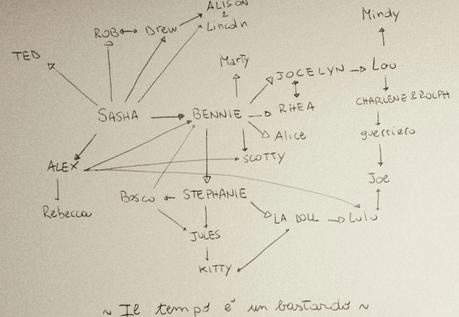 ALISON
&
Lincoln
Mindy
ROB Drew
TED
Marty
JOCELYN Lou
SASHA BENNIE RHEA CHARLENE & ROLPH
Alice guerriero
SCOTTY
ALEX Joe
Rebecca Bosco STEPHANIE
LA DOLL Lulu
JULES
KITTY
~ Il tempo è un bastardo ~